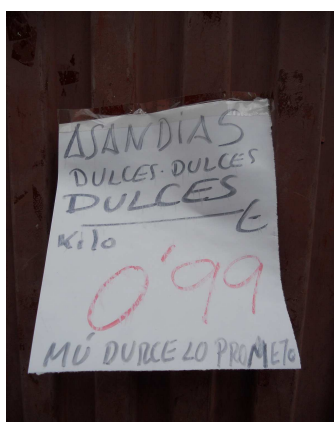 ASANDIAS
DULCES-DULCES
DULCES
€
Kilo
0'99
MÚ DURCE LO PROMETO